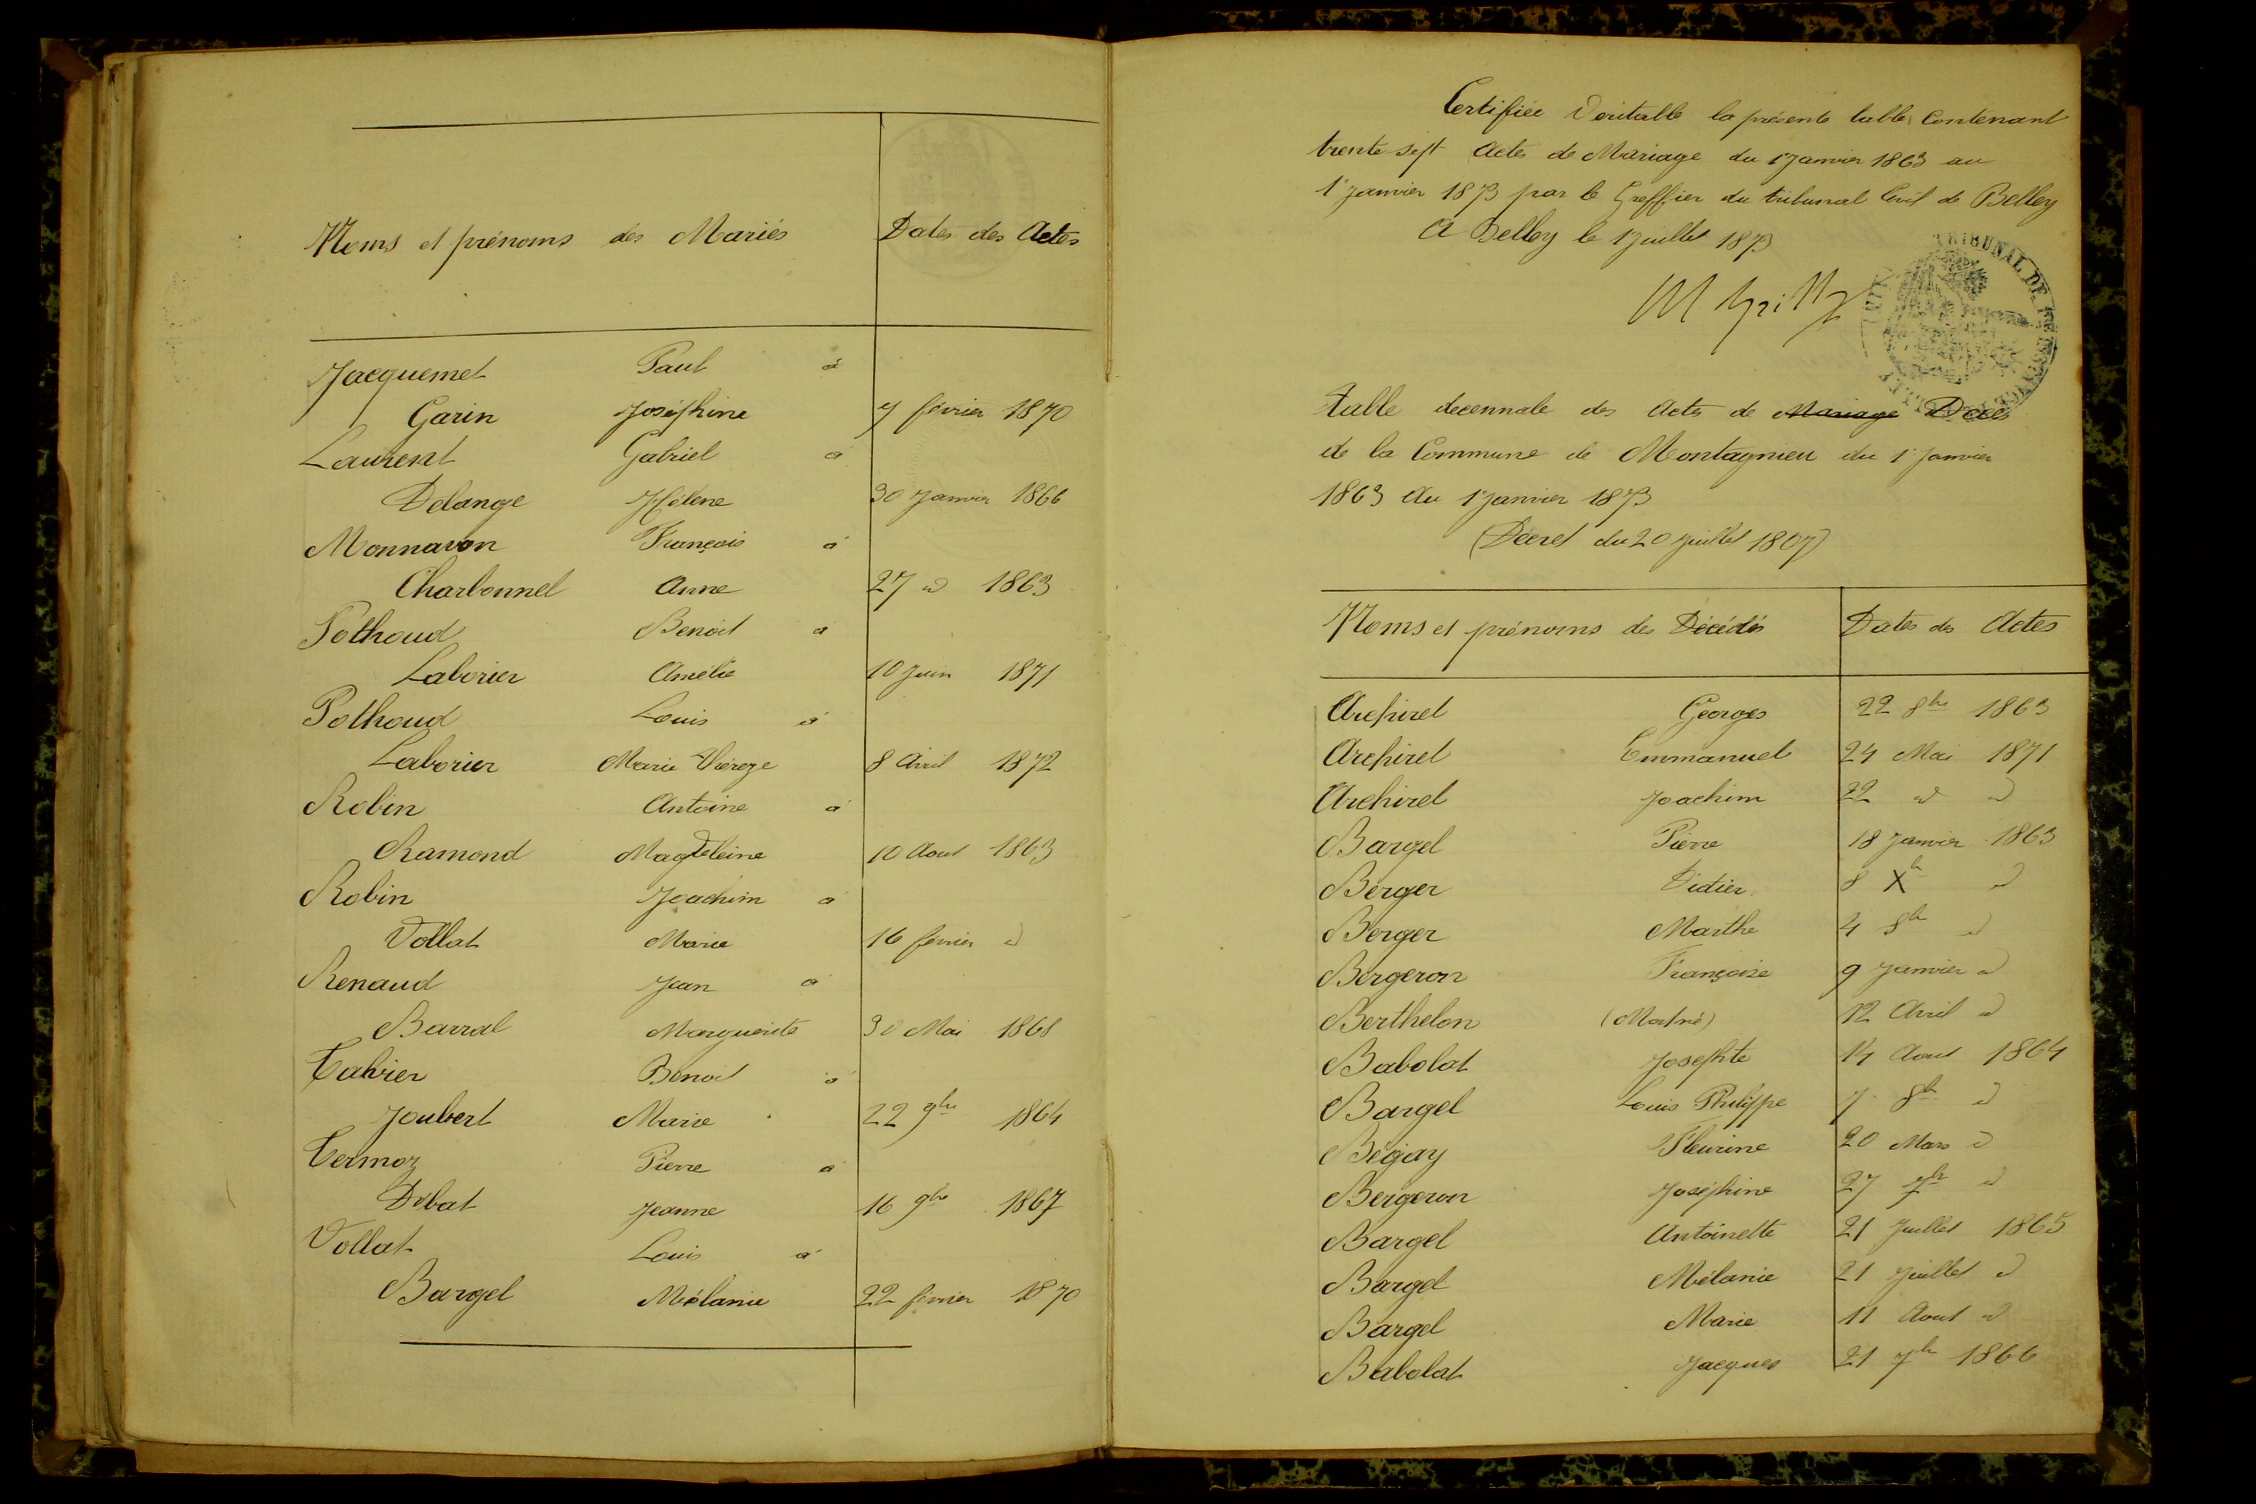 Noms et prénoms des Mariés Dates des Actes
Jacquemet Paul à
Garin Joséphine 7 février 1870
Laurent Gabriel à
Delange Hélène 30 Janvier 1866
Monnavon François à
Charbonnel Anne 27 d 1863
Pothoud Benoit à
Laborier Amélie 10 Juin 1871
Pothoud Louis à
Laborier Marie Thérèze 8 Avril 1872
Robin Antoine à
Ramond Magdeleine 10 Aout 1863
Robin Joachim à
Vollat Marie 16 février d
Renaud Jean à
Barral Marguerite 30 Mai 1868
Tabvier Benoit à
Joubert Marie 22 9bre 1864
Termoz Pierre à
Debat Jeanne 16 9bre 1867
Vollat Louis à
Bargel Mélanie 22 février 1870
Certifiée Véritable la présente table Contenant
trente-sept Actes de Mariage du 1 Janvier 1863 au
1er Janvier 1873 par le Greffier du tribunal Civil de Belley
A Belley le 1 Juillet 1873
TRIBUNAL DE
Table decennale des Actes de Mariage Décès
de la Commune de Montagnieu du 1er Janvier
1863 Au 1 Janvier 1873
(Décret du 20 Juillet 1807)
Noms et prénoms des Décédés Dates des Actes
Archirel Georges 22 8bre 1863
Archirel Emmanuel 24 Mai 1871
Archirel Joachim 22 d d
Bargel Pierre 18 Janvier 1863
Berger Didier 8 Xbre d
Berger Marthe 4 8bre d
Bergeron Françoise 9 Janvier d
Berthelon (Mort né) 12 Avril d
Babolat Josephte 14 Aout 1864
Bargel Louis Philippe 7 8bre d
Bégay Fleurine 20 Mars d
Bergeron Joséphine 27 7bre d
Bargel Antoinette 21 Juillet 1865
Bargel Mélanie 21 Juillet d
Bargel Marie 11 Aout d
Babolat Jacques 21 7bre 1866